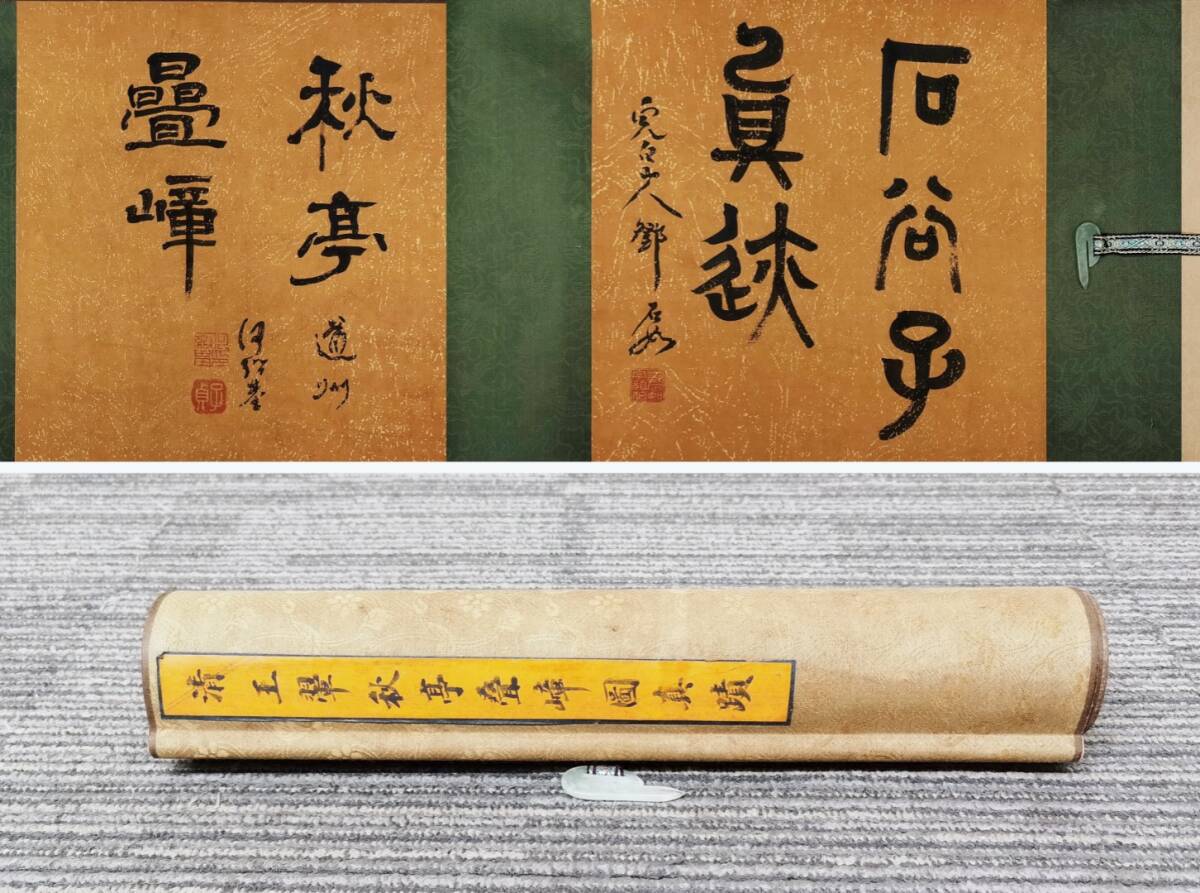 石谷子
真迹
完白山人鄧石如
秋亭
疊嶂
道州
何紹基
子貞
清王翬秋亭叠嶂圖真蹟